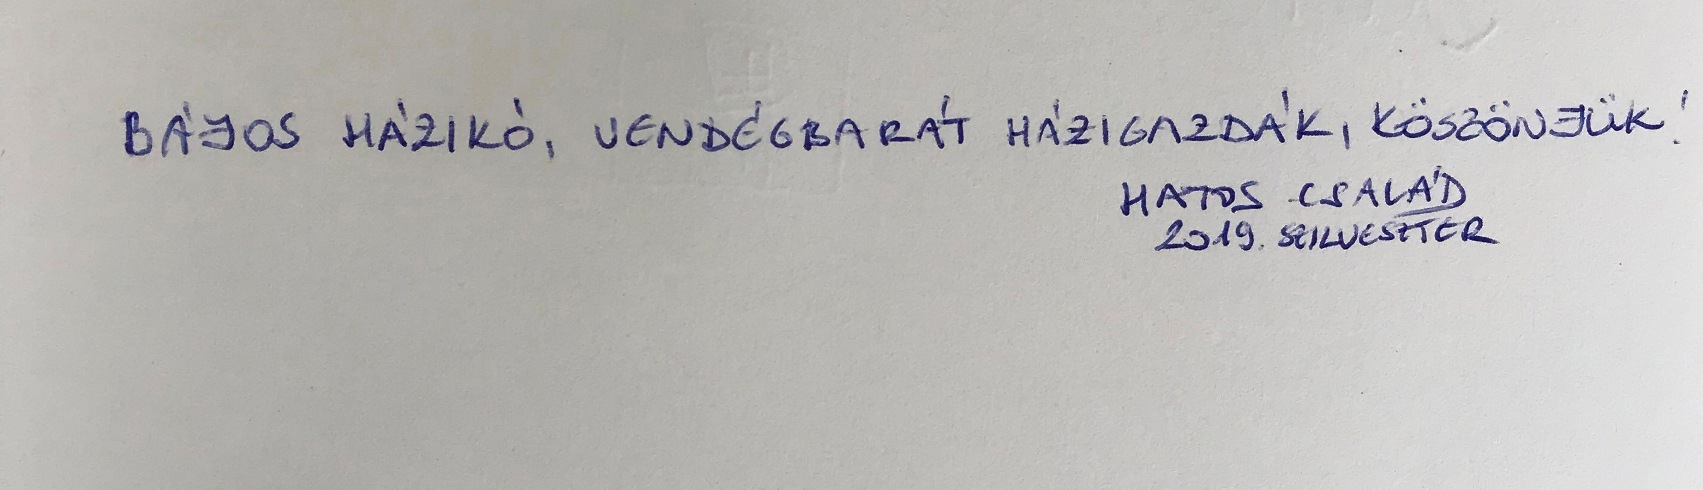 BÁJOS HÁZIKÓ, VENDÉGBARÁT HÁZIGAZDÁK, KÖSZÖNJÜK!
HATOS CSALÁD
2019. SZILVESZTER